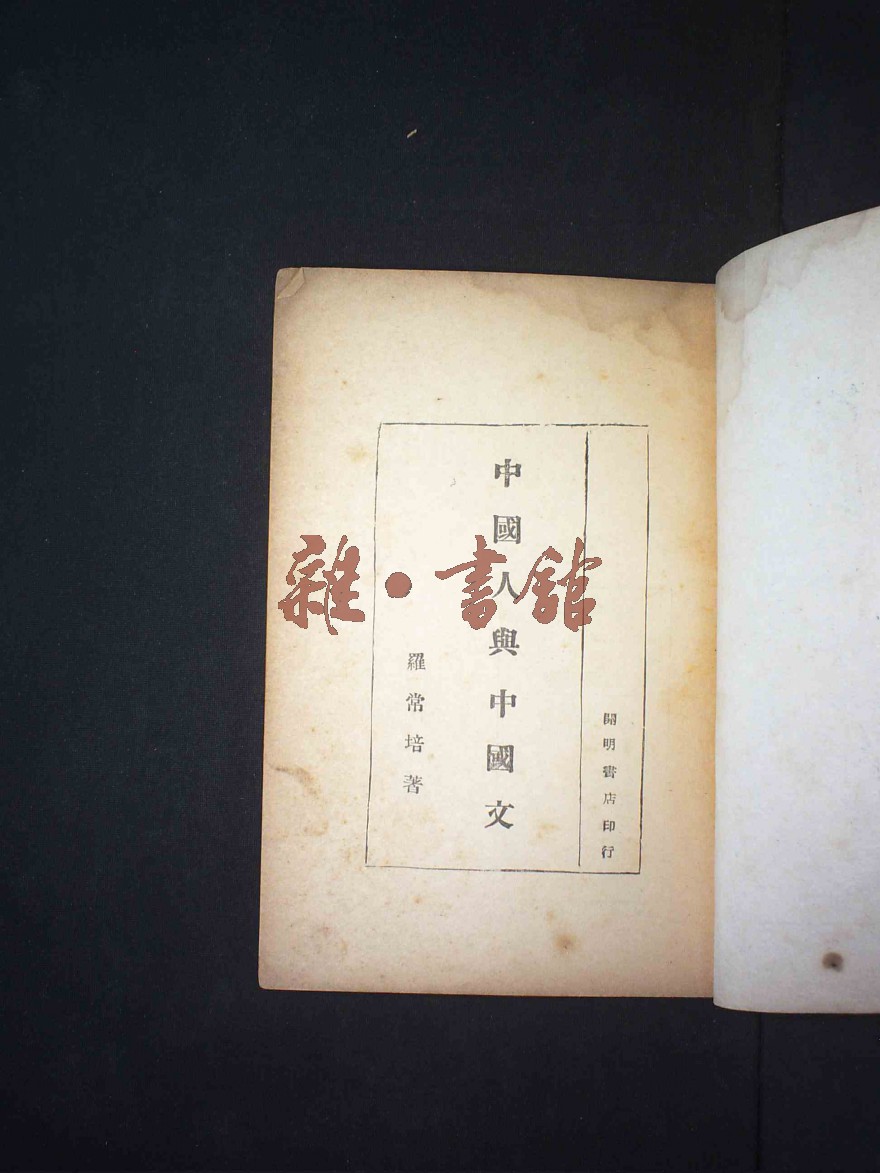 開明書店印行
中國人與中國文
羅常培著
雜·書館